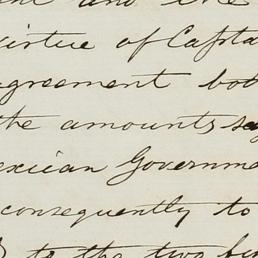 and the
virtue of Capta
agreement bot
the amounts say
exican Governme
consequently to
to the two